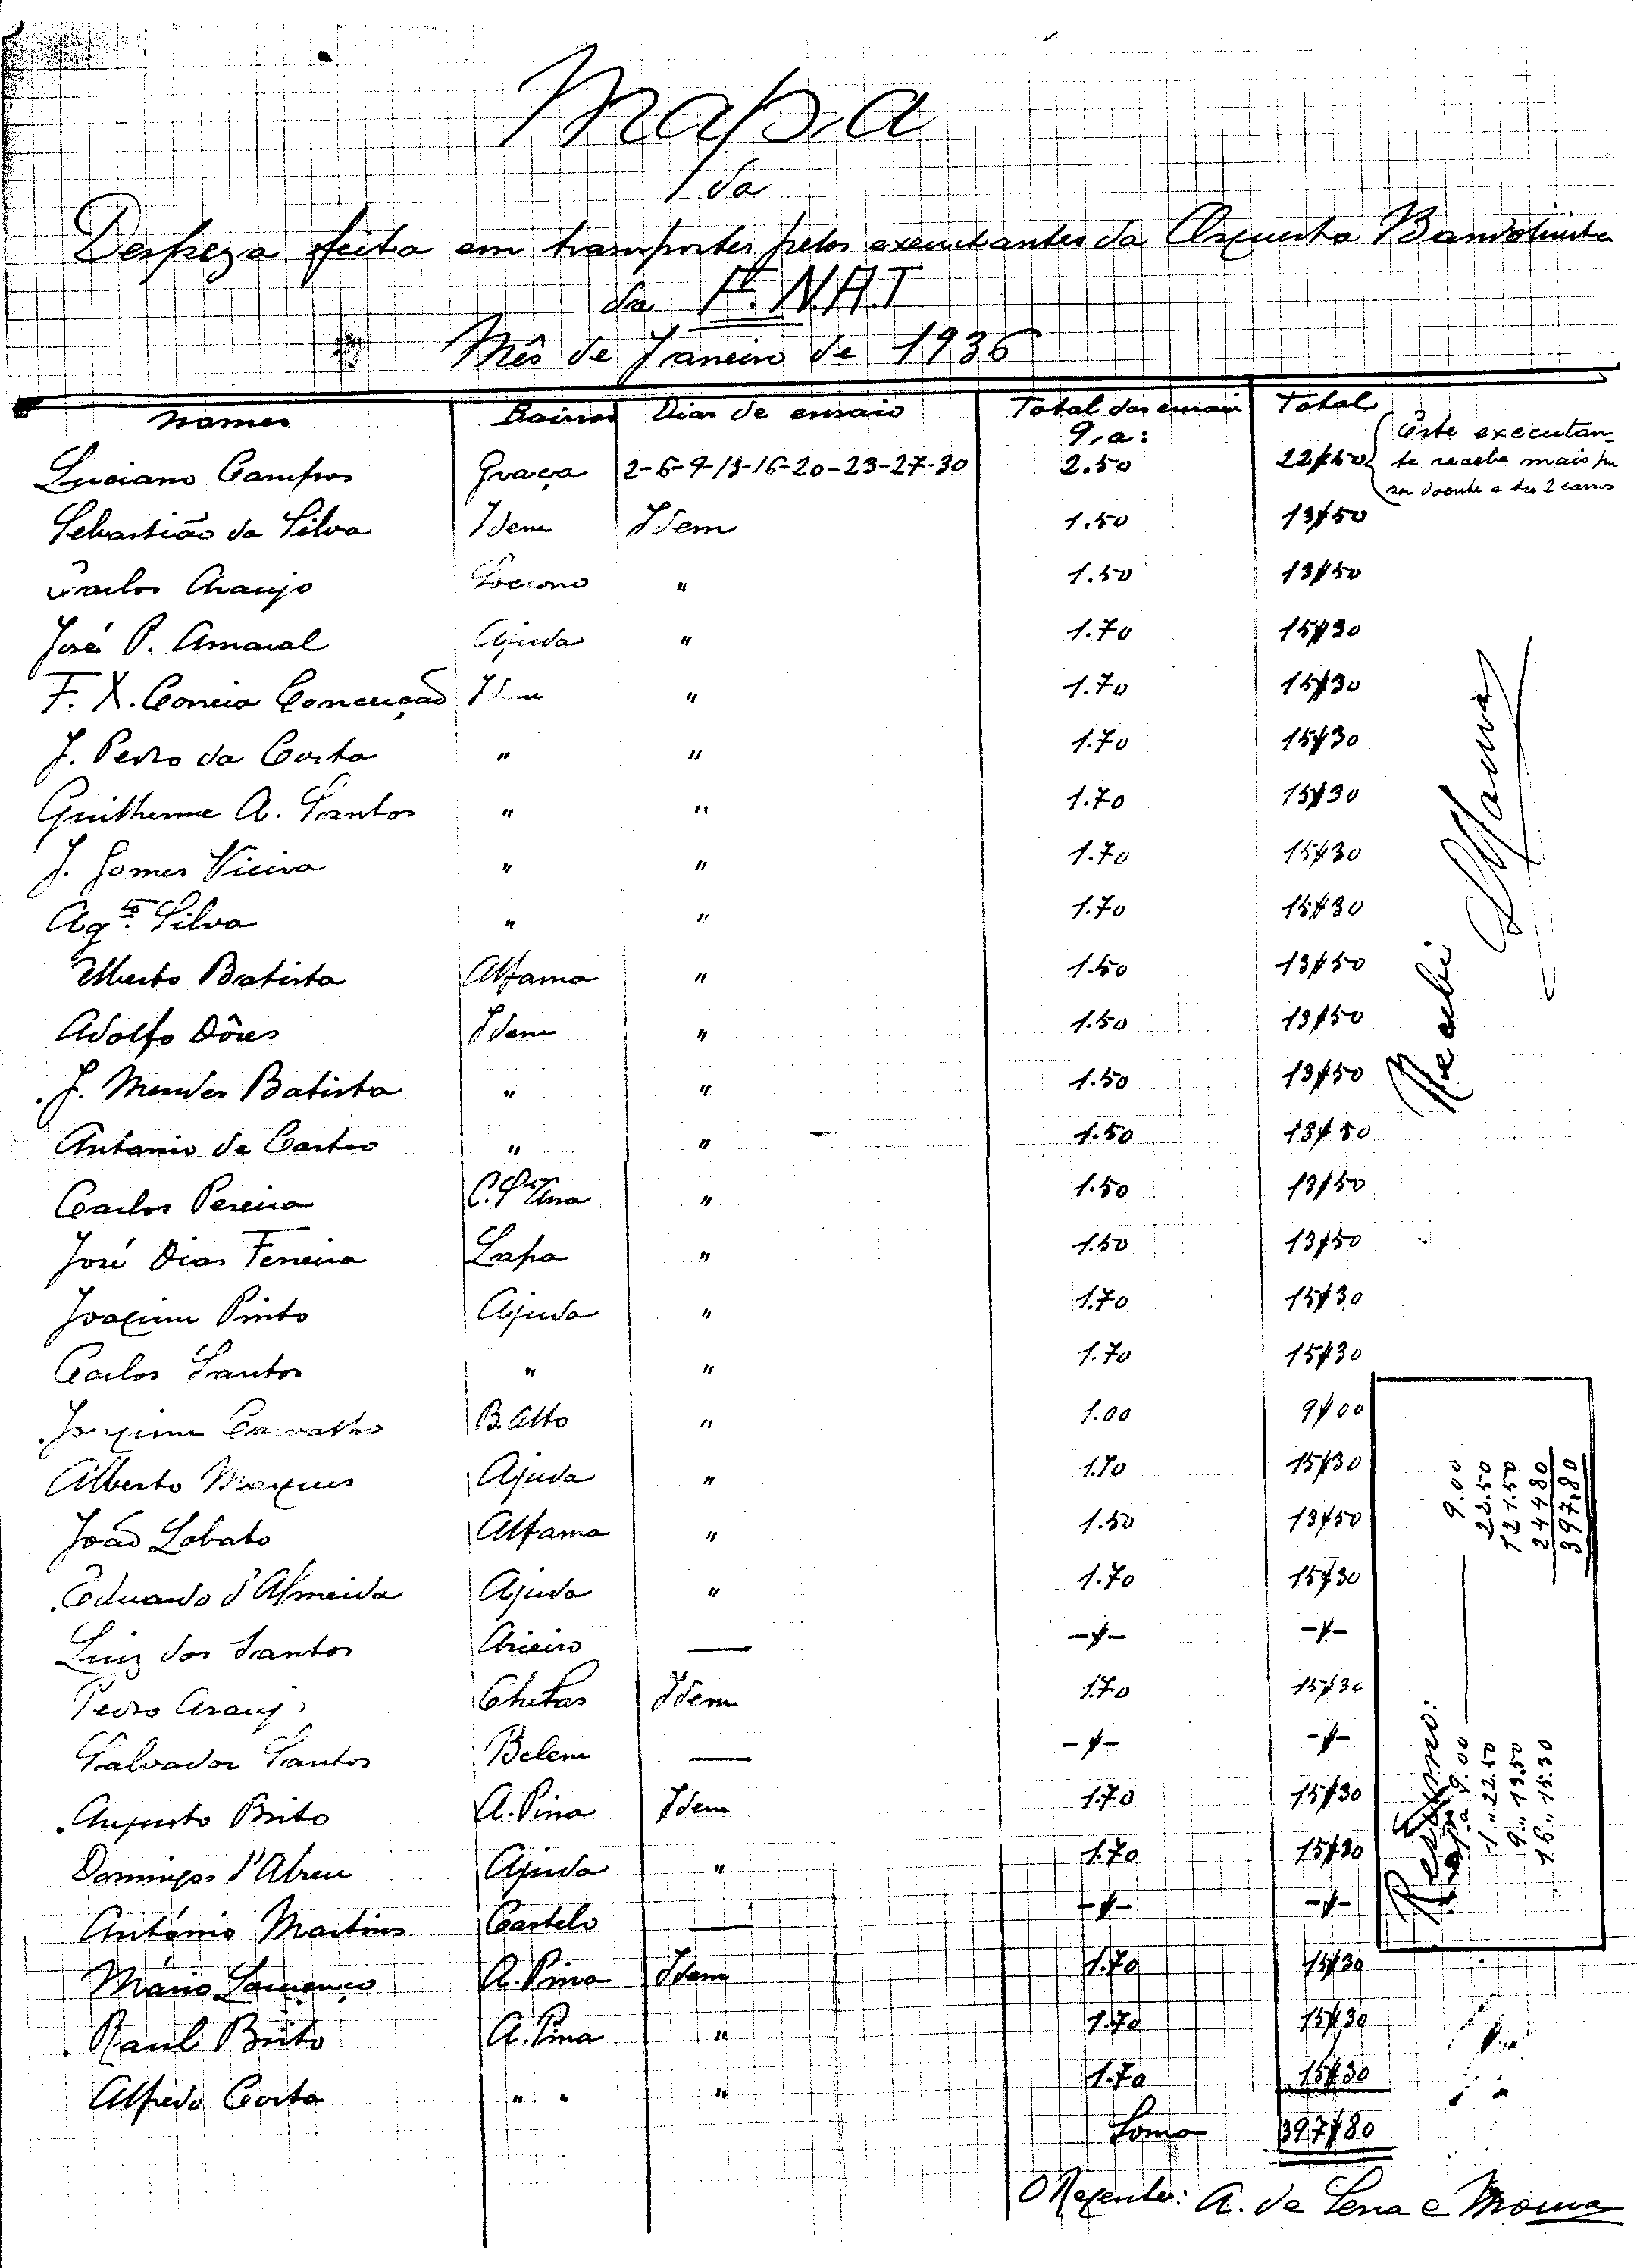 Mapa
da
Despeza feita em transportes pelos executantes da Orquestra Bandolinista
da F.N.A.T
Mês de Janeiro de 1936
Nomes Bairros Dias de ensaio Total dos ensaios Total
9, a:
Luciano Campos Graça 2-6-9-13-16-20-23-27-30 2.50 22$50 Este executan-
te recebe mais por
ser doente e ter 2 carros
Sebastião da Silva Idem Idem 1.50 13$50
Carlos Araujo Socorro " 1.50 13$50
José P. Amaral Ajuda " 1.70 15$30
F. X. Correia Conceição Idem " 1.70 15$30
J. Pedro da Costa " " 1.70 15$30
Guilherme A. Santos " " 1.70 15$30
J. Gomes Vieira " " 1.70 15$30
Agto. Silva " " 1.70 15$30
Alberto Batista Alfama " 1.50 13$50
Adolfo Dôres Idem " 1.50 13$50
J. Mendes Batista " " 1.50 13$50
Antonio de Castro " " 1.50 13$50
Carlos Pereira C. Sta Ana " 1.50 13$50
José Dias Ferreira Lapa " 1.50 13$50
Joaquim Pinto Ajuda " 1.70 15$30
Carlos Santos " " 1.70 15$30
Joaquim Carvalho B. Alto " 1.00 9$00
Alberto Marques Ajuda " 1.70 15$30
João Lobato Alfama " 1.50 13$50
Eduardo d'Almeida Ajuda " 1.70 15$30
Luiz dos Santos Arieiro — -$- -$-
Pedro Araujo Chelas Idem 1.70 15$30
Salvador Santos Belem — -$- -$-
Augusto Brito A. Pina Idem 1.70 15$30
Domingos d'Abreu Ajuda " 1.70 15$30
António Martins Castelo — -$- -$-
Mário Lourenço A. Pina Idem 1.70 15$30
Raul Brito A. Pina " 1.70 15$30
Alfredo Costa " " " 1.70 15$30
Soma 397$80
O Regente: A. de Sena e Moura
Recebi
Resumo:
1 a 9.00 — 9.00
1 " 22.50 22.50
9 " 13.50 121.50
16 " 15.30 244.80
397.80